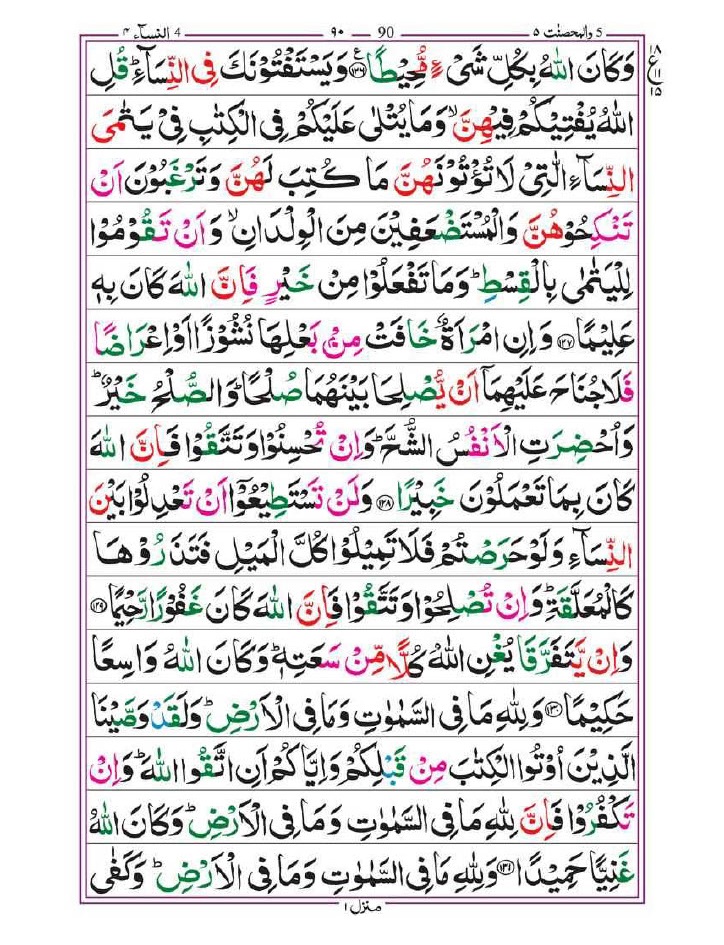 5 والمحصنت ۵ 90 — ۹۰ 4 النسآء ۴
۱۸
ع
۱۱
۱۵
وَكَانَ اللّٰهُ بِكُلِّ شَیْءٍ مُّحِیْطًا ﴿۱۲۶﴾ ع وَیَسْتَفْتُوْنَكَ فِی النِّسَآءِ ؕ قُلِ
اللّٰهُ یُفْتِیْكُمْ فِیْهِنَّ ۙ وَمَا یُتْلٰی عَلَیْكُمْ فِی الْكِتٰبِ فِیْ یَتٰمَی
النِّسَآءِ الّٰتِیْ لَا تُؤْتُوْنَهُنَّ مَا كُتِبَ لَهُنَّ وَتَرْغَبُوْنَ اَنْ
تَنْكِحُوْهُنَّ وَالْمُسْتَضْعَفِیْنَ مِنَ الْوِلْدَانِ ۙ وَاَنْ تَقُوْمُوْا
لِلْیَتٰمٰی بِالْقِسْطِ ؕ وَمَا تَفْعَلُوْا مِنْ خَیْرٍ فَاِنَّ اللّٰهَ كَانَ بِهٖ
عَلِیْمًا ﴿۱۲۷﴾ وَاِنِ امْرَاَةٌ خَافَتْ مِنْۢ بَعْلِهَا نُشُوْزًا اَوْ اِعْرَاضًا
فَلَا جُنَاحَ عَلَیْهِمَاۤ اَنْ یُّصْلِحَا بَیْنَهُمَا صُلْحًا ؕ وَالصُّلْحُ خَیْرٌ ؕ
وَاُحْضِرَتِ الْاَنْفُسُ الشُّحَّ ؕ وَاِنْ تُحْسِنُوْا وَتَتَّقُوْا فَاِنَّ اللّٰهَ
كَانَ بِمَا تَعْمَلُوْنَ خَبِیْرًا ﴿۱۲۸﴾ وَلَنْ تَسْتَطِیْعُوْۤا اَنْ تَعْدِلُوْا بَیْنَ
النِّسَآءِ وَلَوْ حَرَصْتُمْ فَلَا تَمِیْلُوْا كُلَّ الْمَیْلِ فَتَذَرُوْهَا
كَالْمُعَلَّقَةِ ؕ وَاِنْ تُصْلِحُوْا وَتَتَّقُوْا فَاِنَّ اللّٰهَ كَانَ غَفُوْرًا رَّحِیْمًا ﴿۱۲۹﴾
وَاِنْ یَّتَفَرَّقَا یُغْنِ اللّٰهُ كُلًّا مِّنْ سَعَتِهٖ ؕ وَكَانَ اللّٰهُ وَاسِعًا
حَكِیْمًا ﴿۱۳۰﴾ وَلِلّٰهِ مَا فِی السَّمٰوٰتِ وَمَا فِی الْاَرْضِ ؕ وَلَقَدْ وَصَّیْنَا
الَّذِیْنَ اُوْتُوا الْكِتٰبَ مِنْ قَبْلِكُمْ وَاِیَّاكُمْ اَنِ اتَّقُوا اللّٰهَ ؕ وَاِنْ
تَكْفُرُوْا فَاِنَّ لِلّٰهِ مَا فِی السَّمٰوٰتِ وَمَا فِی الْاَرْضِ ؕ وَكَانَ اللّٰهُ
غَنِیًّا حَمِیْدًا ﴿۱۳۱﴾ وَلِلّٰهِ مَا فِی السَّمٰوٰتِ وَمَا فِی الْاَرْضِ ؕ وَكَفٰی
منزل ۱